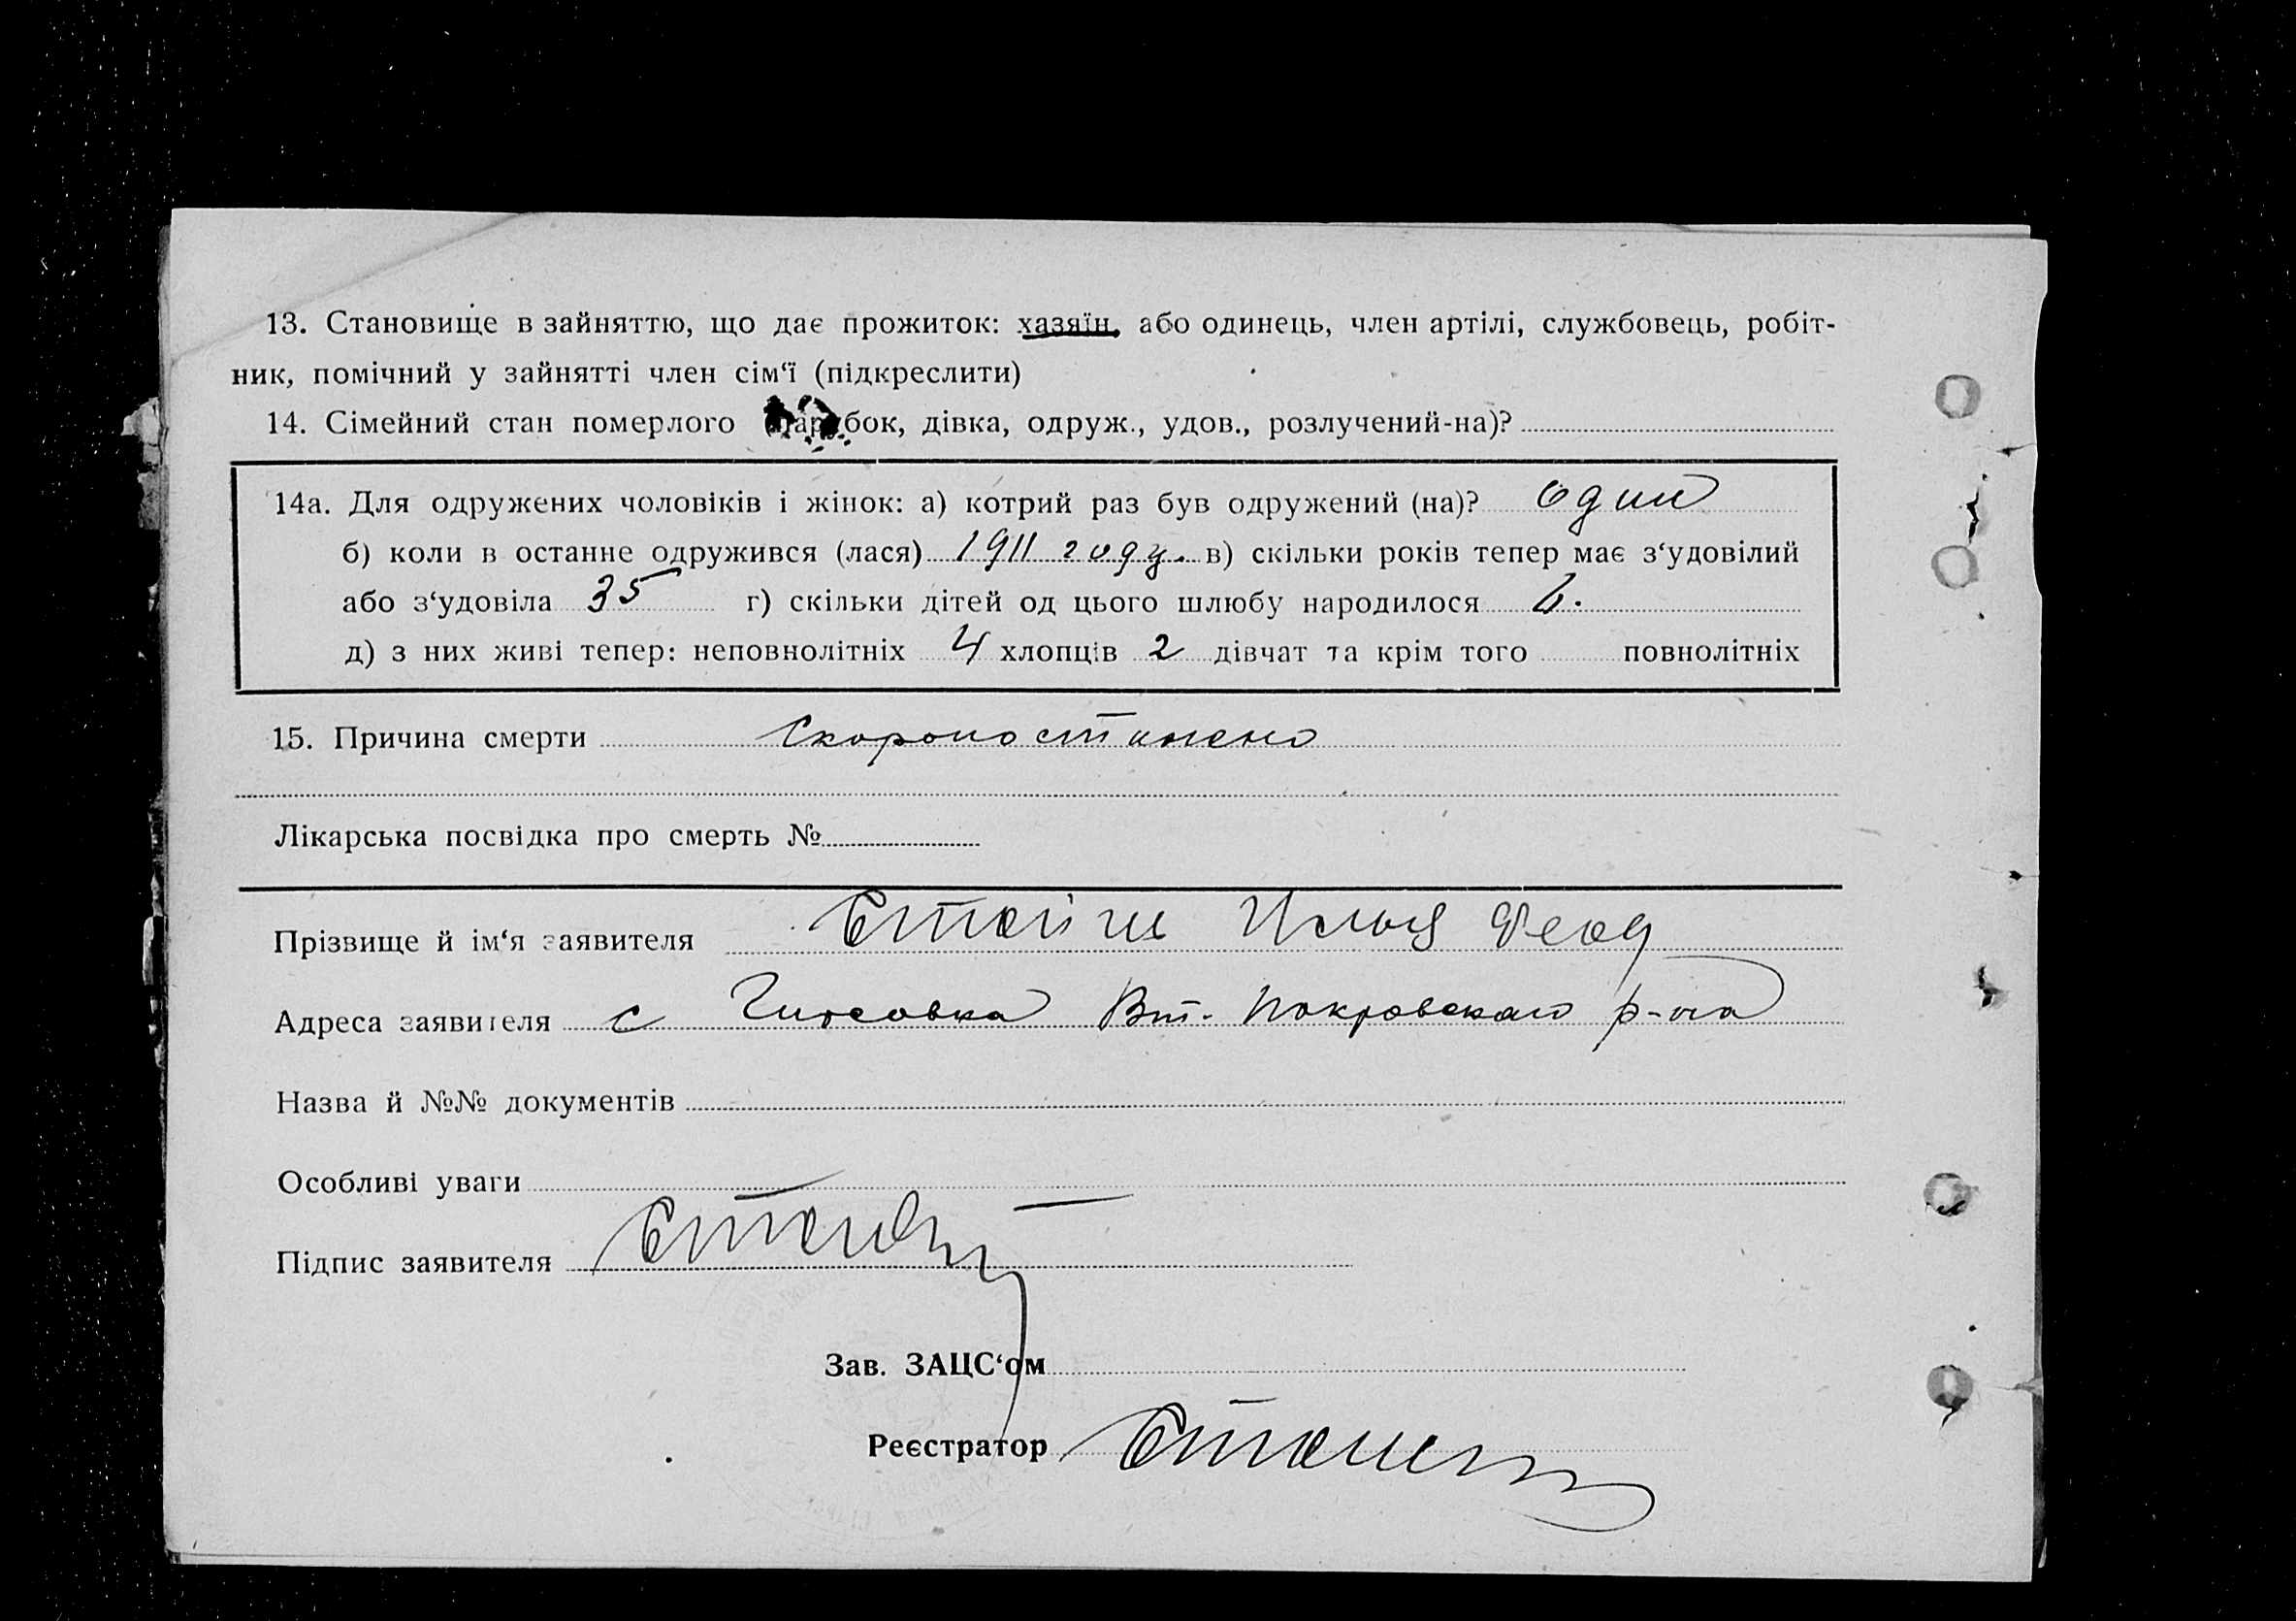 13. Становище в зайняттю, що дає прожиток: хазяїн, або одинець, член артілі, службовець, робіт-
ник, помічний у зайнятті член сім‘ї (підкреслити)
14. Сімейний стан померлого (парубок, дівка, одруж., удов., розлучений-на)?
14а. Для одружених чоловіків і жінок: а) котрий раз був одружений (на)? один
б) коли в останнє одружився (лася) 1911 году. в) скільки років тепер має з‘удовілий
або з‘удовіла 35 г) скільки дітей од цього шлюбу народилося 6.
д) з них живі тепер: неповнолітніх 4 хлопців 2 дівчат та крім того повнолітніх
15. Причина смерти Скоропостижено
Лікарська посвідка про смерть №
Прізвище й ім‘я заявителя Илья Феод
Адреса заявителя с Вт. Покровскаго р-на
Назва й №№ документів
Особливі уваги
Підпис заявителя
Зав. ЗАЦС‘ом
Реєстратор